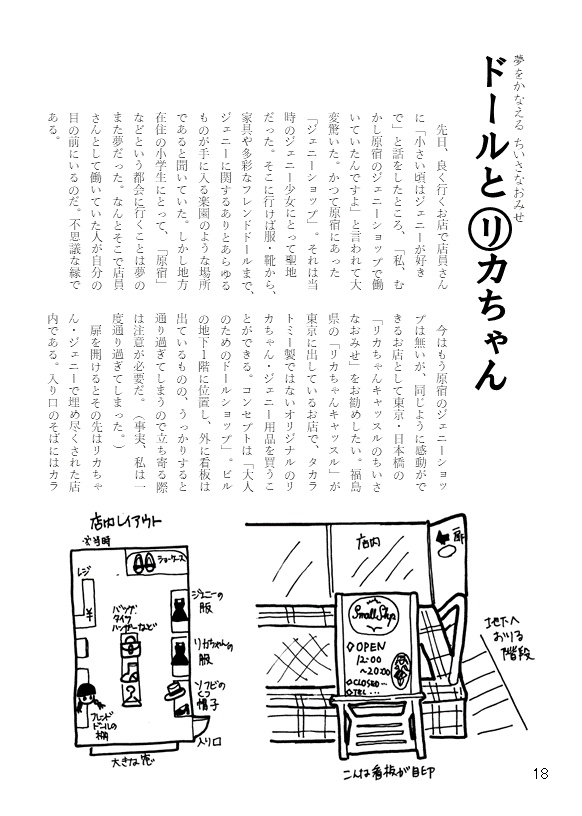 夢をかなえる ちいさなおみせ
ドールとリカちゃん
先日、良く行くお店で店員さん
に「小さい頃はジェニーが好き
で」と話をしたところ、「私、む
かし原宿のジェニーショップで働
いていたんですよ」と言われて大
変驚いた。かつて原宿にあった
「ジェニーショップ」。それは当
時のジェニー少女にとって聖地
だった。そこに行けば服・靴から、
家具や多彩なフレンドドールまで、
ジェニーに関するありとあらゆる
ものが手に入る楽園のような場所
であると聞いていた。しかし地方
在住の小学生にとって、「原宿」
などという都会に行くことは夢の
また夢だった。なんとそこで店員
さんとして働いていた人が自分の
目の前にいるのだ。不思議な縁で
ある。
今はもう原宿のジェニーショッ
プは無いが、同じように感動がで
きるお店として東京・日本橋の
「リカちゃんキャッスルのちいさ
なおみせ」をお勧めしたい。福島
県の「リカちゃんキャッスル」が
東京に出しているお店で、タカラ
トミー製ではないオリジナルのリ
カちゃん・ジェニー用品を買うこ
とができる。コンセプトは「大人
のためのドールショップ」。ビル
の地下1階に位置し、外に看板は
出ているものの、うっかりすると
通り過ぎてしまうので立ち寄る際
は注意が必要だ。（事実、私は一
度通り過ぎてしまった。）
扉を開けるとその先はリカちゃ
ん・ジェニーで埋め尽くされた店
内である。入り口のそばにはカラ
店内レイアウト
当時
ショーケース
レジ
¥
バッグ
タイツ
ハンガーなど
ジェニーの
服
リカちゃんの
服
ソフビの
くつ
帽子
フレンド
ドールの
棚
入り口
大きな窓
店内
Small Shop
◇OPEN
12:00
～20:00
◇CLOSED…
◇TEL…
地下へ
おりる
階段
こんな看板が目印
18